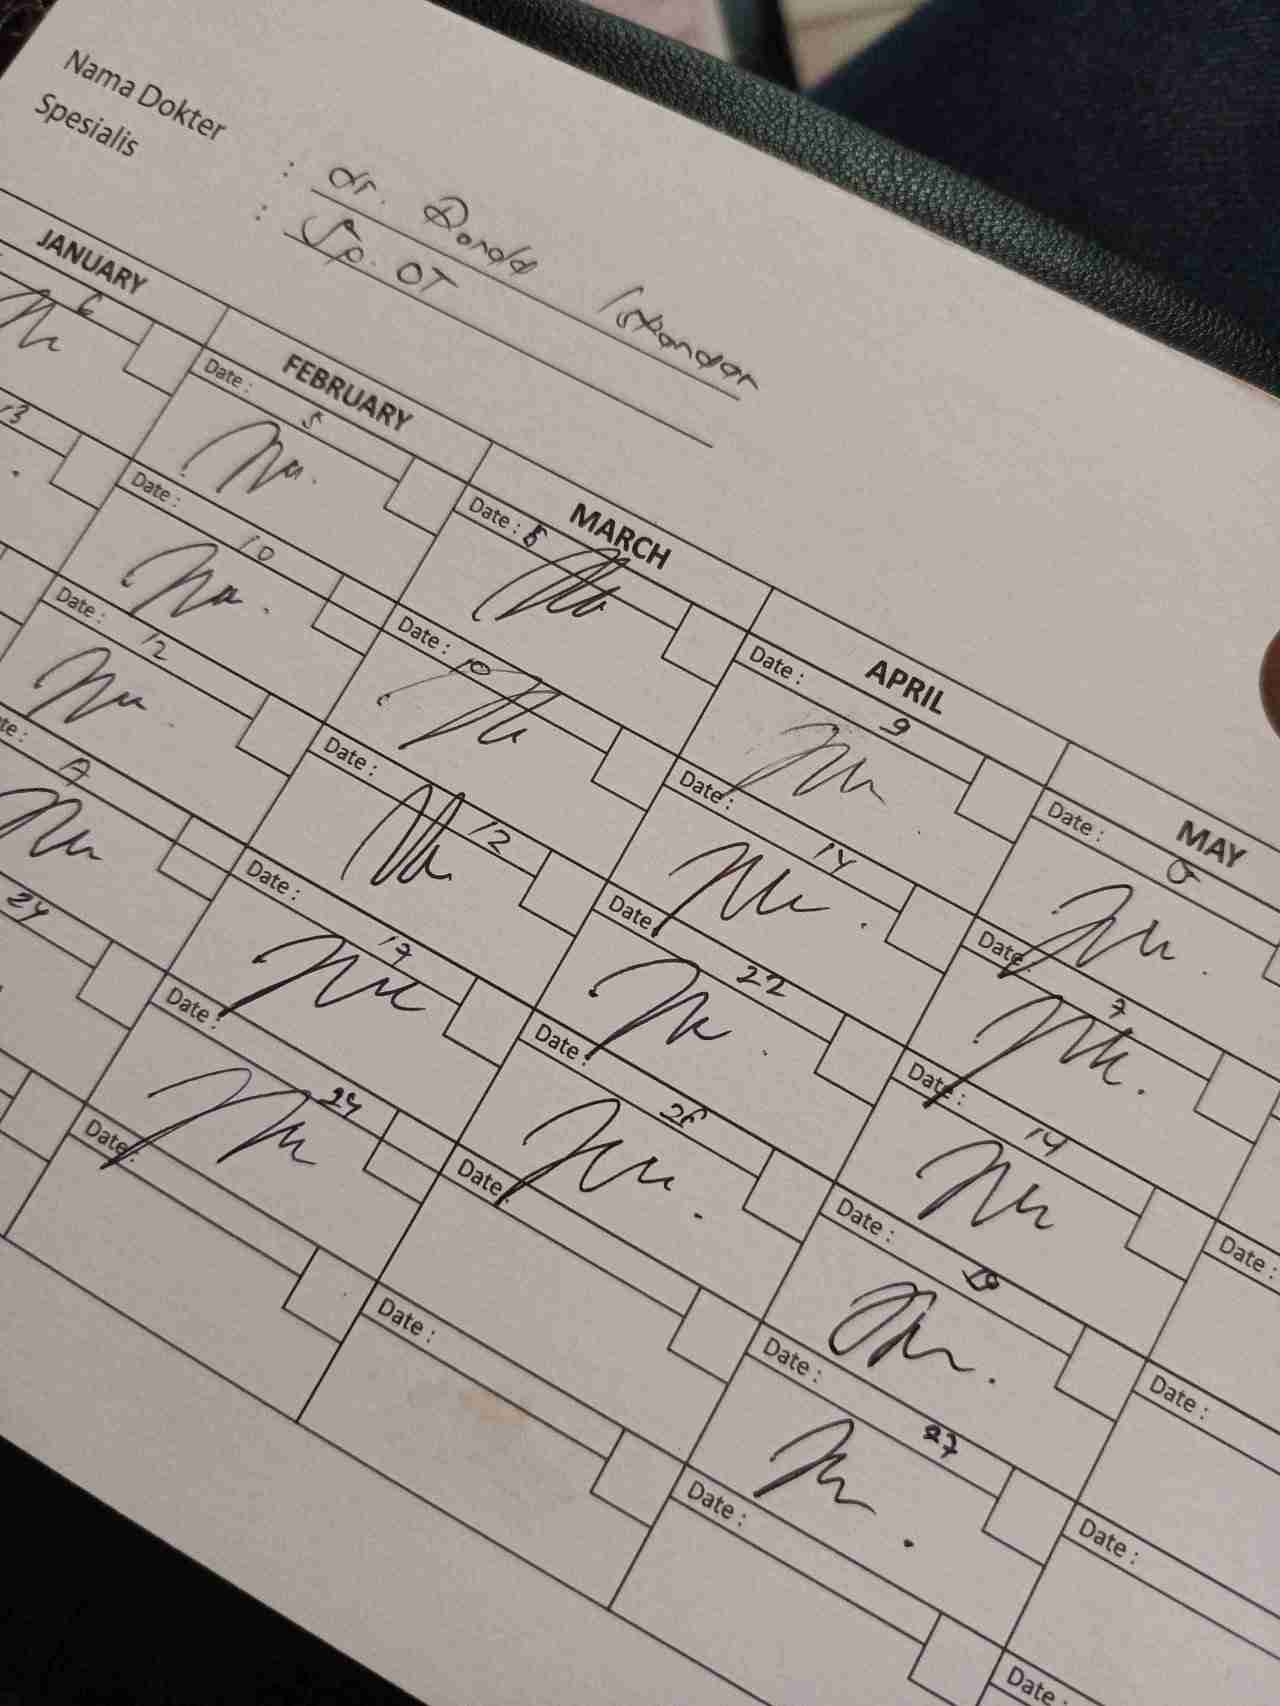 Nama Dokter : dr. Donda Iskandar
Spesialis : Sp. OT
JANUARY FEBRUARY MARCH APRIL MAY
6
Date : 5
Date :
Date : 9
Date : 5
13
Date : 10
Date : 10
Date : 14
Date : 7
Date : 12
Date : 12
Date : 22
Date : 14
Date : 17
Date :
Date : 19
24
Date : 24
Date :
Date : 27
Date :
Date :
Date :
Date :
Date :
Date :
Date :